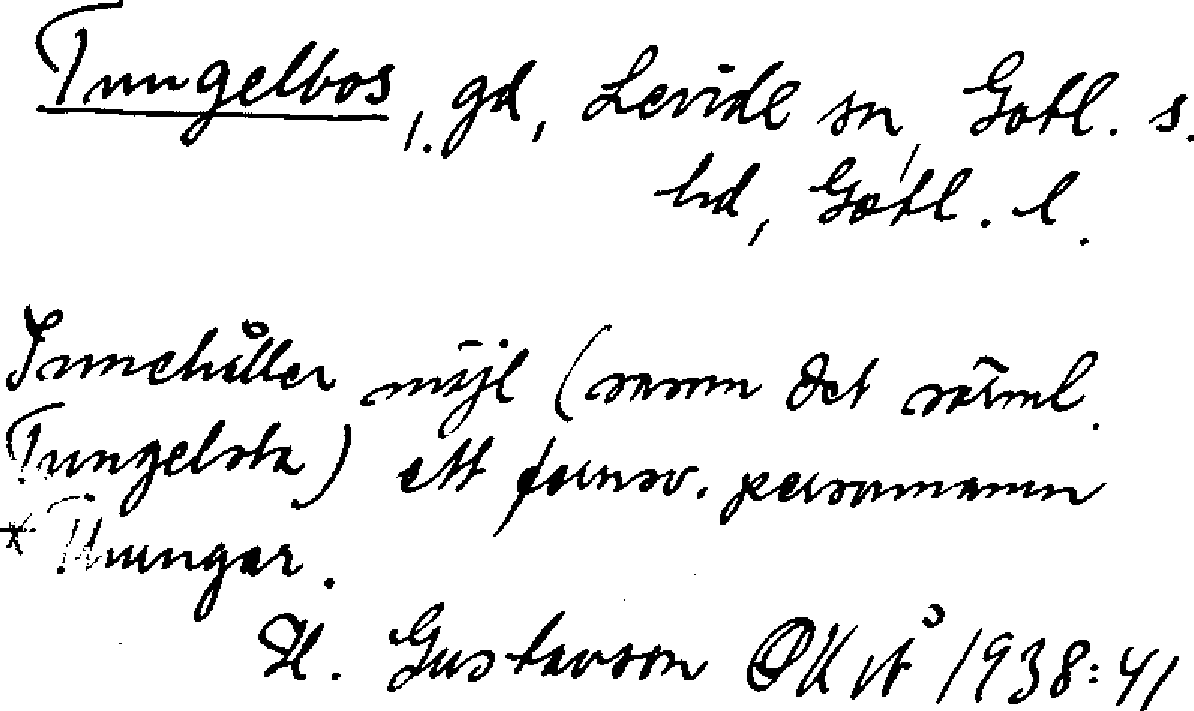 Tungelbos, gd, Levide sn, Gotl. s.
hd, Gotl. l.
Innehåller möjl (samm det sörml.
Tungelsta) ett fornsv. personnamn
* Thungar.
H. Gustavson OKÅ 1938:41